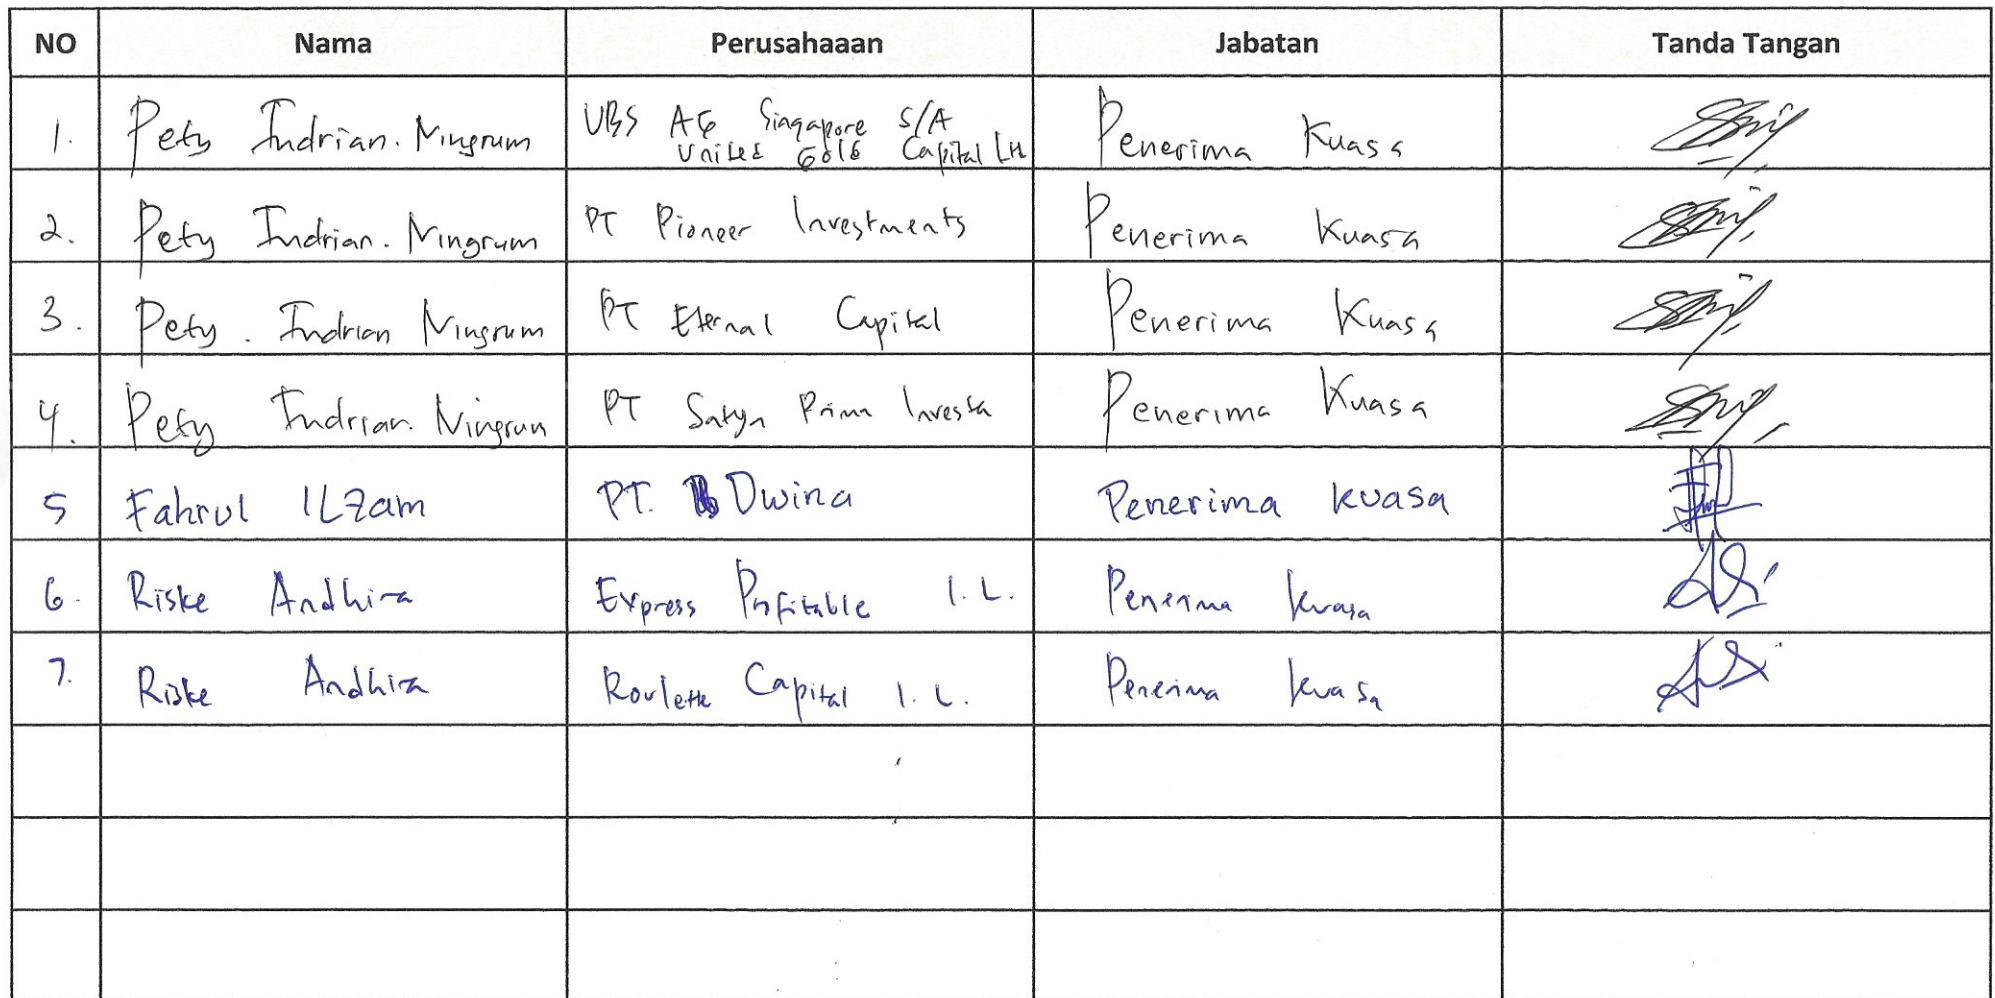 NO Nama Perusahaaan Jabatan Tanda Tangan
1. Pety Indrian. Ningrum UBS AG Singapore S/A Penerima Kuasa
United Gold Capital Ltd
2. Pety Indrian. Ningrum PT Pioneer Investments Penerima Kuasa
3. Pety. Indrian Ningrum PT Eternal Capital Penerima Kuasa
4. Pety Indrian. Ningrum PT Satya Prima Investa Penerima Kuasa
5 Fahrul ILzam PT. Dwina Penerima kuasa
6. Riske Andhira Express Profitable I.L. Penerima kuasa
7. Riske Andhira Roulette Capital I.L. Penerima kuasa